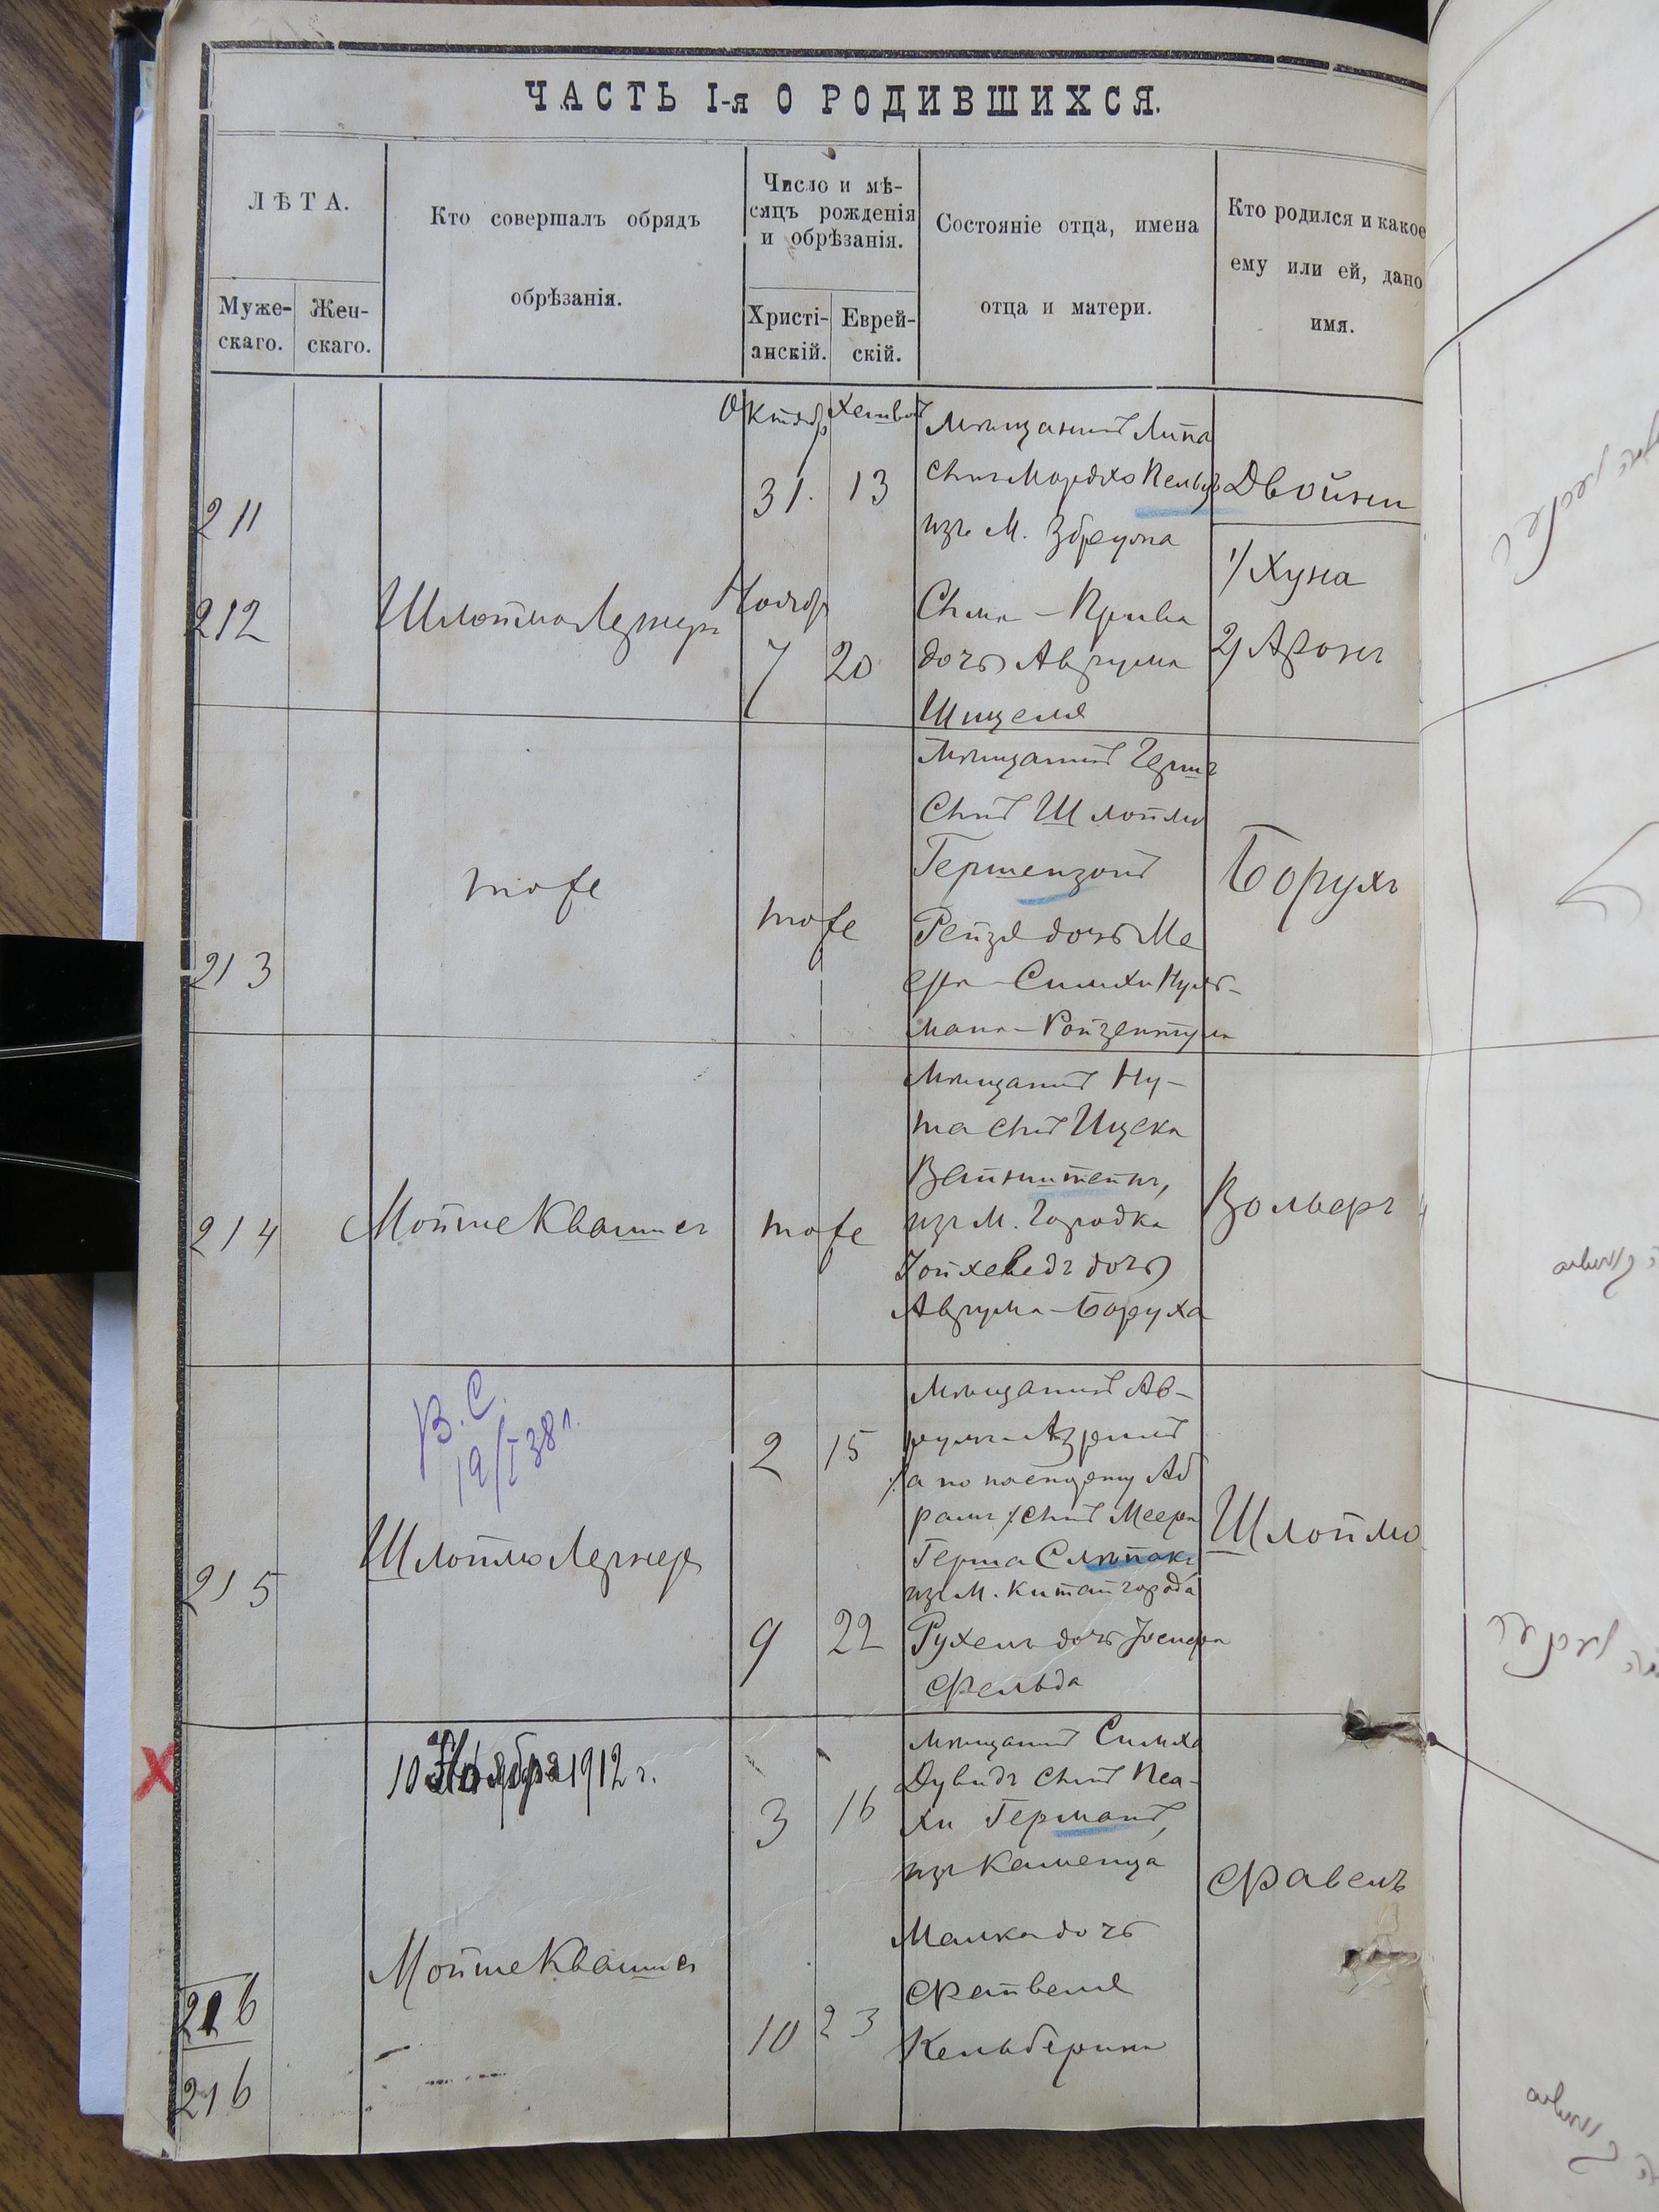 ЧАСТЬ I-я О РОДИВШИХСЯ.
ЛѢТА.
Муже-
скаго.
Жен-
скаго.
Кто совершалъ обрядъ
обрѣзанія.
Число и мѣ-
сяцъ рожденія
и обрѣзанія.
Христі-
анскій.
Еврей-
скій.
Состояніе отца, имена
отца и матери.
Кто родился и какое
ему или ей, дано
имя.
211
212
Шлойма Лернеръ
Октябр
31.
Ноябр
7
Хешвонъ
13
20
Мѣщанинъ Липа
сынъ Мордко
изъ М.
Сыма - Прива
дочь Аврума
Шицеля
Двойни
1/ Хуна
2/ Аронъ
213
тоже
тоже
Мѣщанинъ Герш
Сынъ Шлоймы
Гершензонъ
Рейзя дочь Ме
ера - Симхи Нухъ-
мана - Ройзентула
Борухъ
214
Мойше Квашнеръ
тоже
Мѣщанинъ Ну-
та сынъ Ицека
Вайнштейнъ,
изъ М. Городка
Іойхеведъ дочь
Аврума - Боруха
Вольферъ
215
В. С.
19/I 38 г.
Шлойма Лернеръ
2
15
9
22
Мѣщанинъ Ав-
румъ - Азриль
/а по паспорту Аб
рамъ/ сынъ Меера
Герша Слѣпакъ
изъ М. Китайгорода
Рухель дочь Іосифа
Фельда
Шлойма
216
216
10 Ноября 1912 г.
Мойше Квашнеръ
3
16
10
23
Мѣщанинъ Симха
Дувидъ сынъ Пса-
хи Германъ,
изъ Каменца
Малка дочь
Файвеля
Кельберина
Фавель